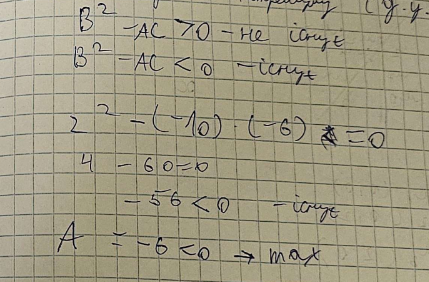 (y.y.
B² - AC > 0 - не існує
B² - AC < 0 - існує
2² - (-10) · (-6) = 0
4 - 60 = 0
- 56 < 0 - існує
A = -6 < 0 → max